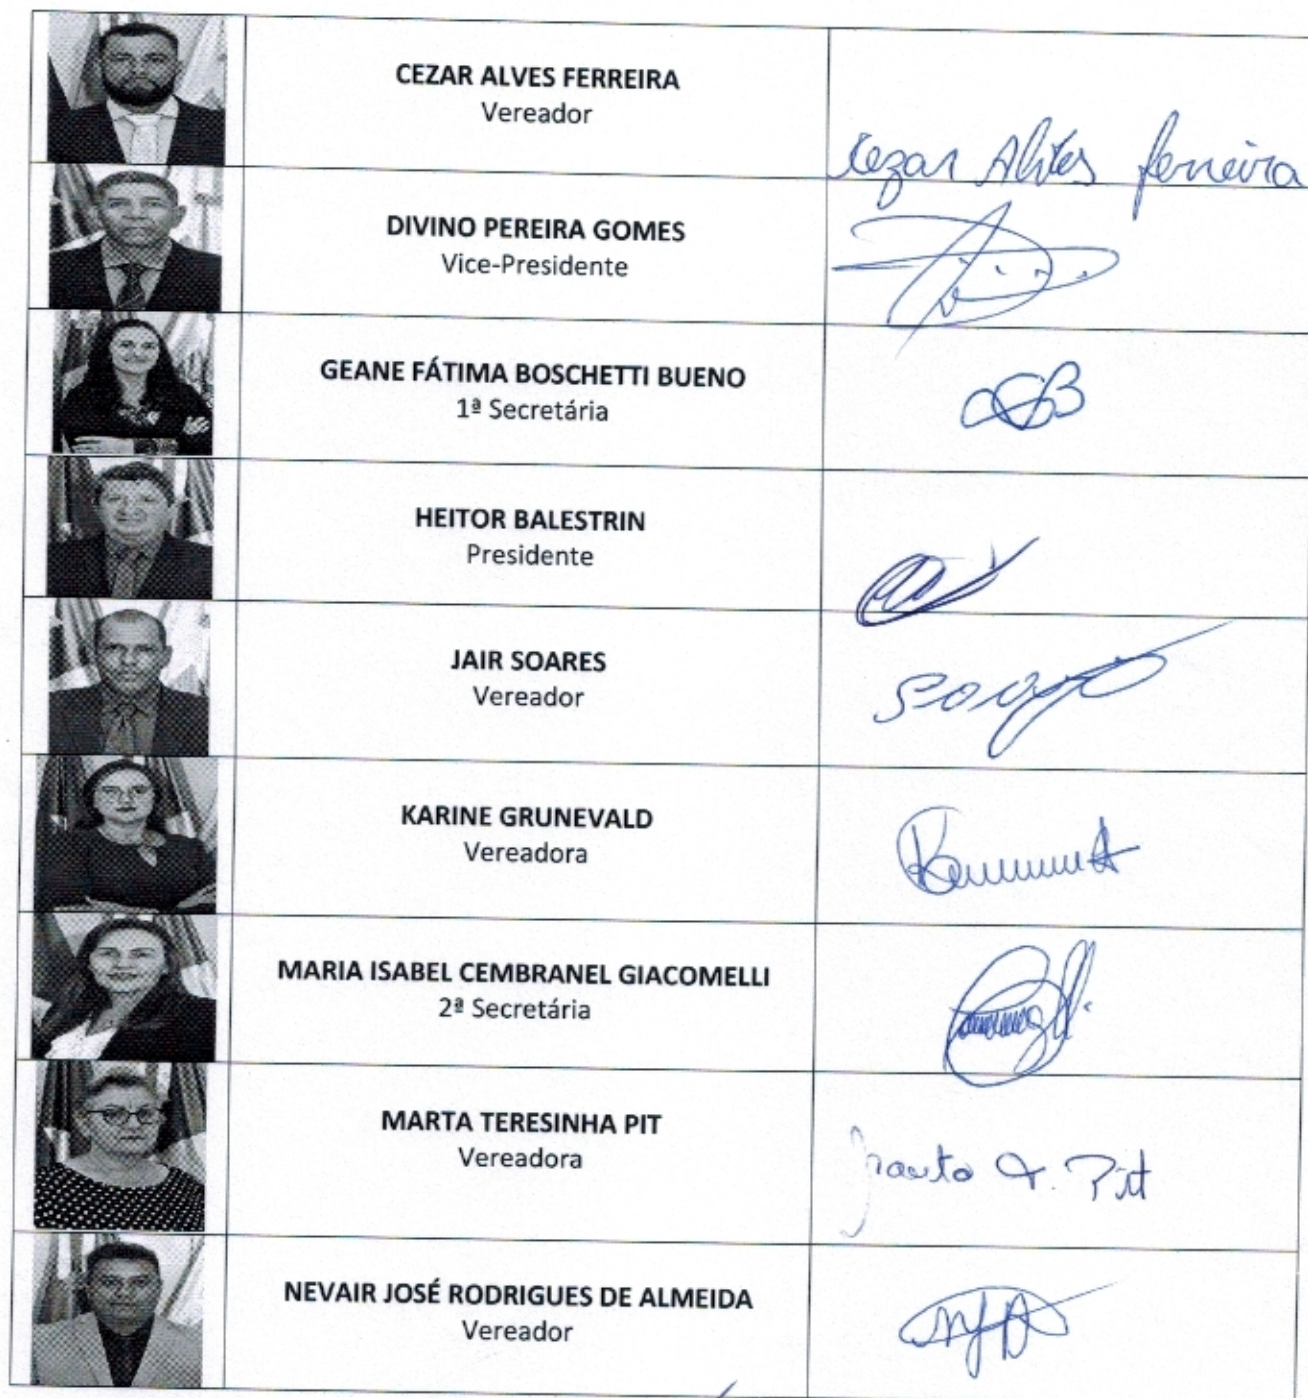 CEZAR ALVES FERREIRA
Vereador
Cezar Alves Ferreira
DIVINO PEREIRA GOMES
Vice-Presidente
GEANE FÁTIMA BOSCHETTI BUENO
1ª Secretária
HEITOR BALESTRIN
Presidente
JAIR SOARES
Vereador
KARINE GRUNEVALD
Vereadora
MARIA ISABEL CEMBRANEL GIACOMELLI
2ª Secretária
MARTA TERESINHA PIT
Vereadora
Marta T. Pit
NEVAIR JOSÉ RODRIGUES DE ALMEIDA
Vereador